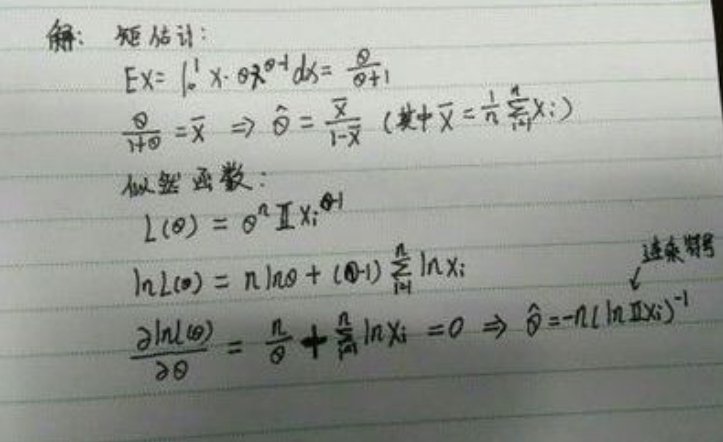 解: 矩估计:
EX = ∫₀¹ x·θx^(θ-1) dx = θ/(θ+1)
θ/(1+θ) = x̄ ⇒ θ̂ = x̄/(1-x̄) (其中 x̄ = 1/n ∑_{i=1}^n xᵢ)
似然函数:
L(θ) = θⁿ ∏ xᵢ^(θ-1)
连乘符号
lnL(θ) = n lnθ + (θ-1) ∑_{i=1}^n ln xᵢ
∂lnL(θ)/∂θ = n/θ + ∑_{i=1}^n ln xᵢ = 0 ⇒ θ̂ = -n(ln∏xᵢ)⁻¹